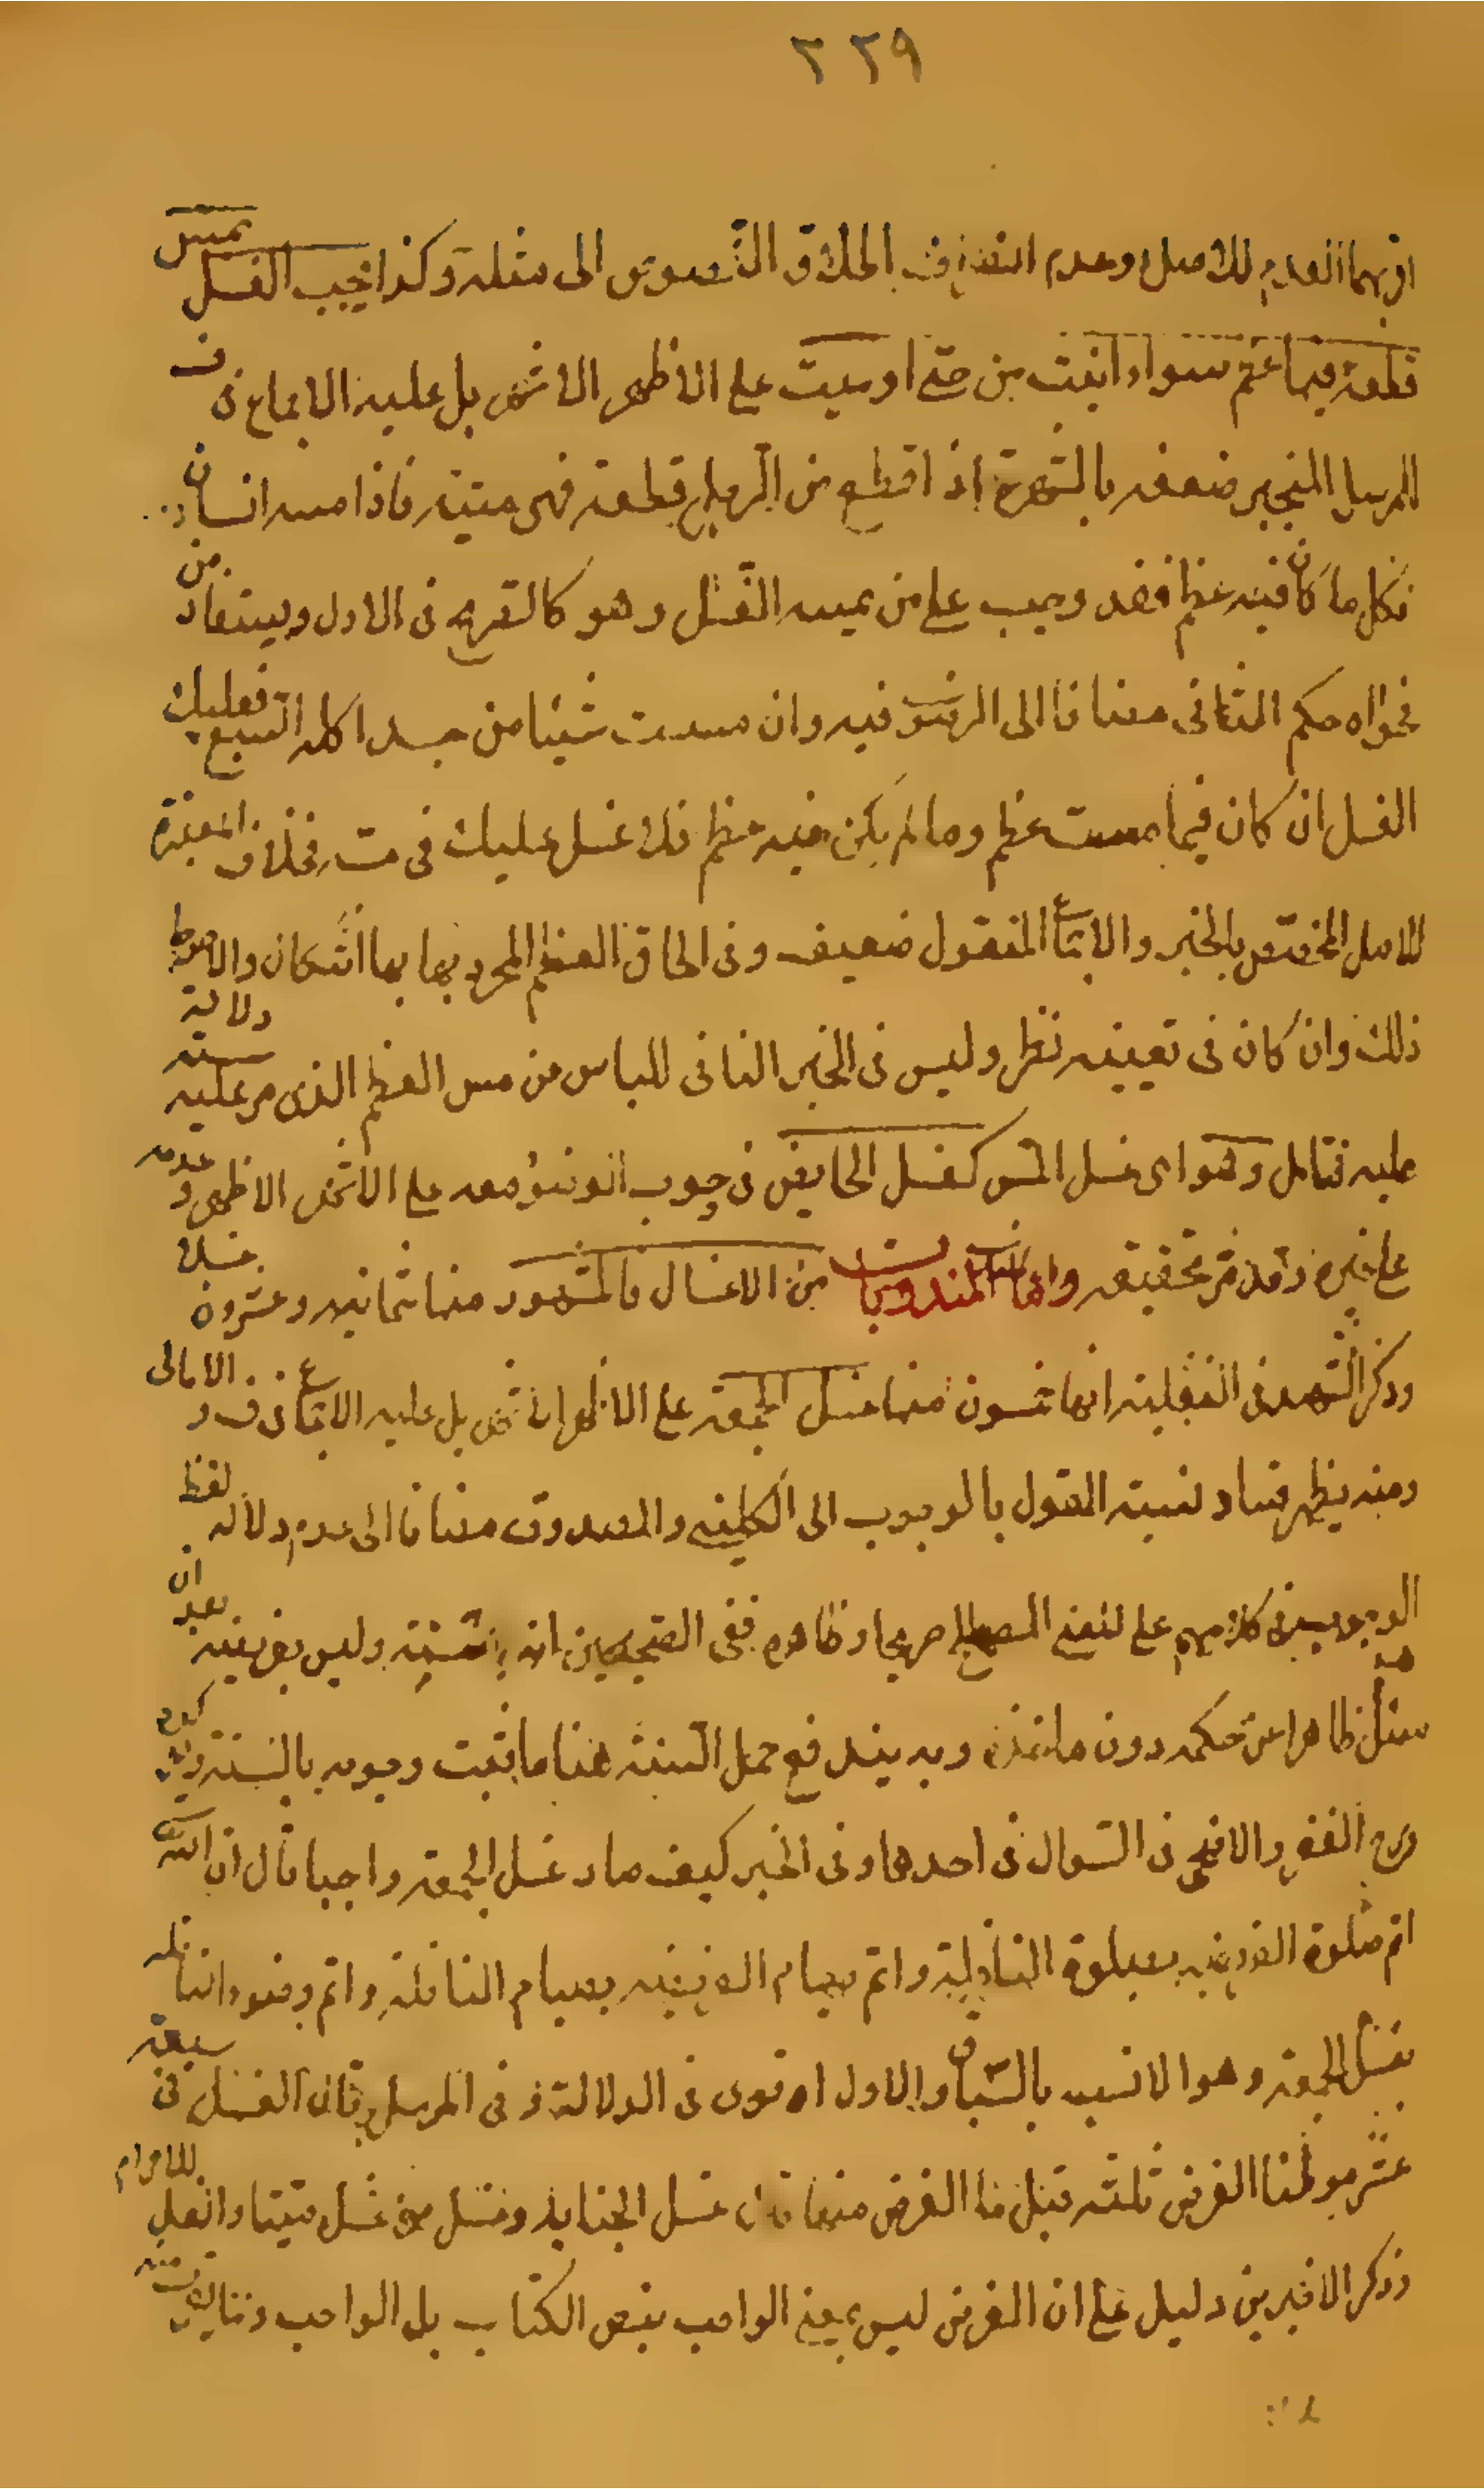 ٢٢٩
اقربهما العدم للاصل وعدم انصراف اطلاق النصوص الى مثله وكذا يجب الغسل بمس
قطعة فيها عظم سواء ابينت من حي او ميت على الاظهر الاشهر بل عليه الاجماع في ف
المرسل المنجبر ضعفه بالشهرة اذا قطع من الرجل قطعة فهي ميتة فاذا مسه انسان
فكل ما كان فيه عظم فقد وجب على من يمسه الغسل وهو كالصريح في الاول ويستفاد من
فحواه حكم الثاني مضافا الى الرضوي فيه وان مسست شيئا من جسد اكله السبع فعليك
الغسل ان كان فيما مسست عظم وما لم يكن فيه عظم فلا غسل عليك في مسه خلافا للمعتبر
للاصل المختص بالخبر والاجماع المنقول ضعيف وفي الحاق العظم المجرد بها بها اشكال والاحوط
ذلك وان كان في تعيينه نظر وليس في الخبر النافي للباس من مس العظم الذي مر عليه سنة دلالة
عليه فتامل وهو اي غسل المس كغسل الحايض في وجوب الوضوء معه على الاشهر الاظهر وعدمه
على غيره وقد مر تحقيقه واما المندوبات من الاغسال فالمشهور منها ثمانية وعشرون غسلا
وذكر الشهيد في النفلية انها خمسون منها غسل الجمعة على الاظهر الاشهر بل عليه الاجماع في ف والامالي
ومنه يظهر فساد نسبة القول بالوجوب الى الكليني والصدوق مضافا الى عدم دلالة لفظ
الوجوب في كلامهم على المعنى المصطلح صريحا وظاهره ففي الصحيحين انه سنة وليس بفريضة بعد ان
سئل ظاهرا عن حكمه دون ماخذه وبه يندفع حمل السنة هنا ما ثبت وجوبه بالسنة
الفطر والاضحى في السوال في احدها وفي الخبر كيف صار غسل الجمعة واجبا قال ان الله
اتم صلوة الفريضة بصلوة النافلة واتم صيام الفريضة بصيام النافلة واتم وضوء النافلة
بغسل الجمعة وهو الانسب بالسياق والاول اقوى في الدلالة وفي المرسل قال الغسل في سبعة
عشر موطنا الفرض ثلثة فقيل ما الفرض منها قال غسل الجنابة وغسل من غسل ميتا والغسل للاحرام
وذكر الاخيرين دليل على ان الفرض ليس بمعنى الواجب بنص الكتاب بل الواجب